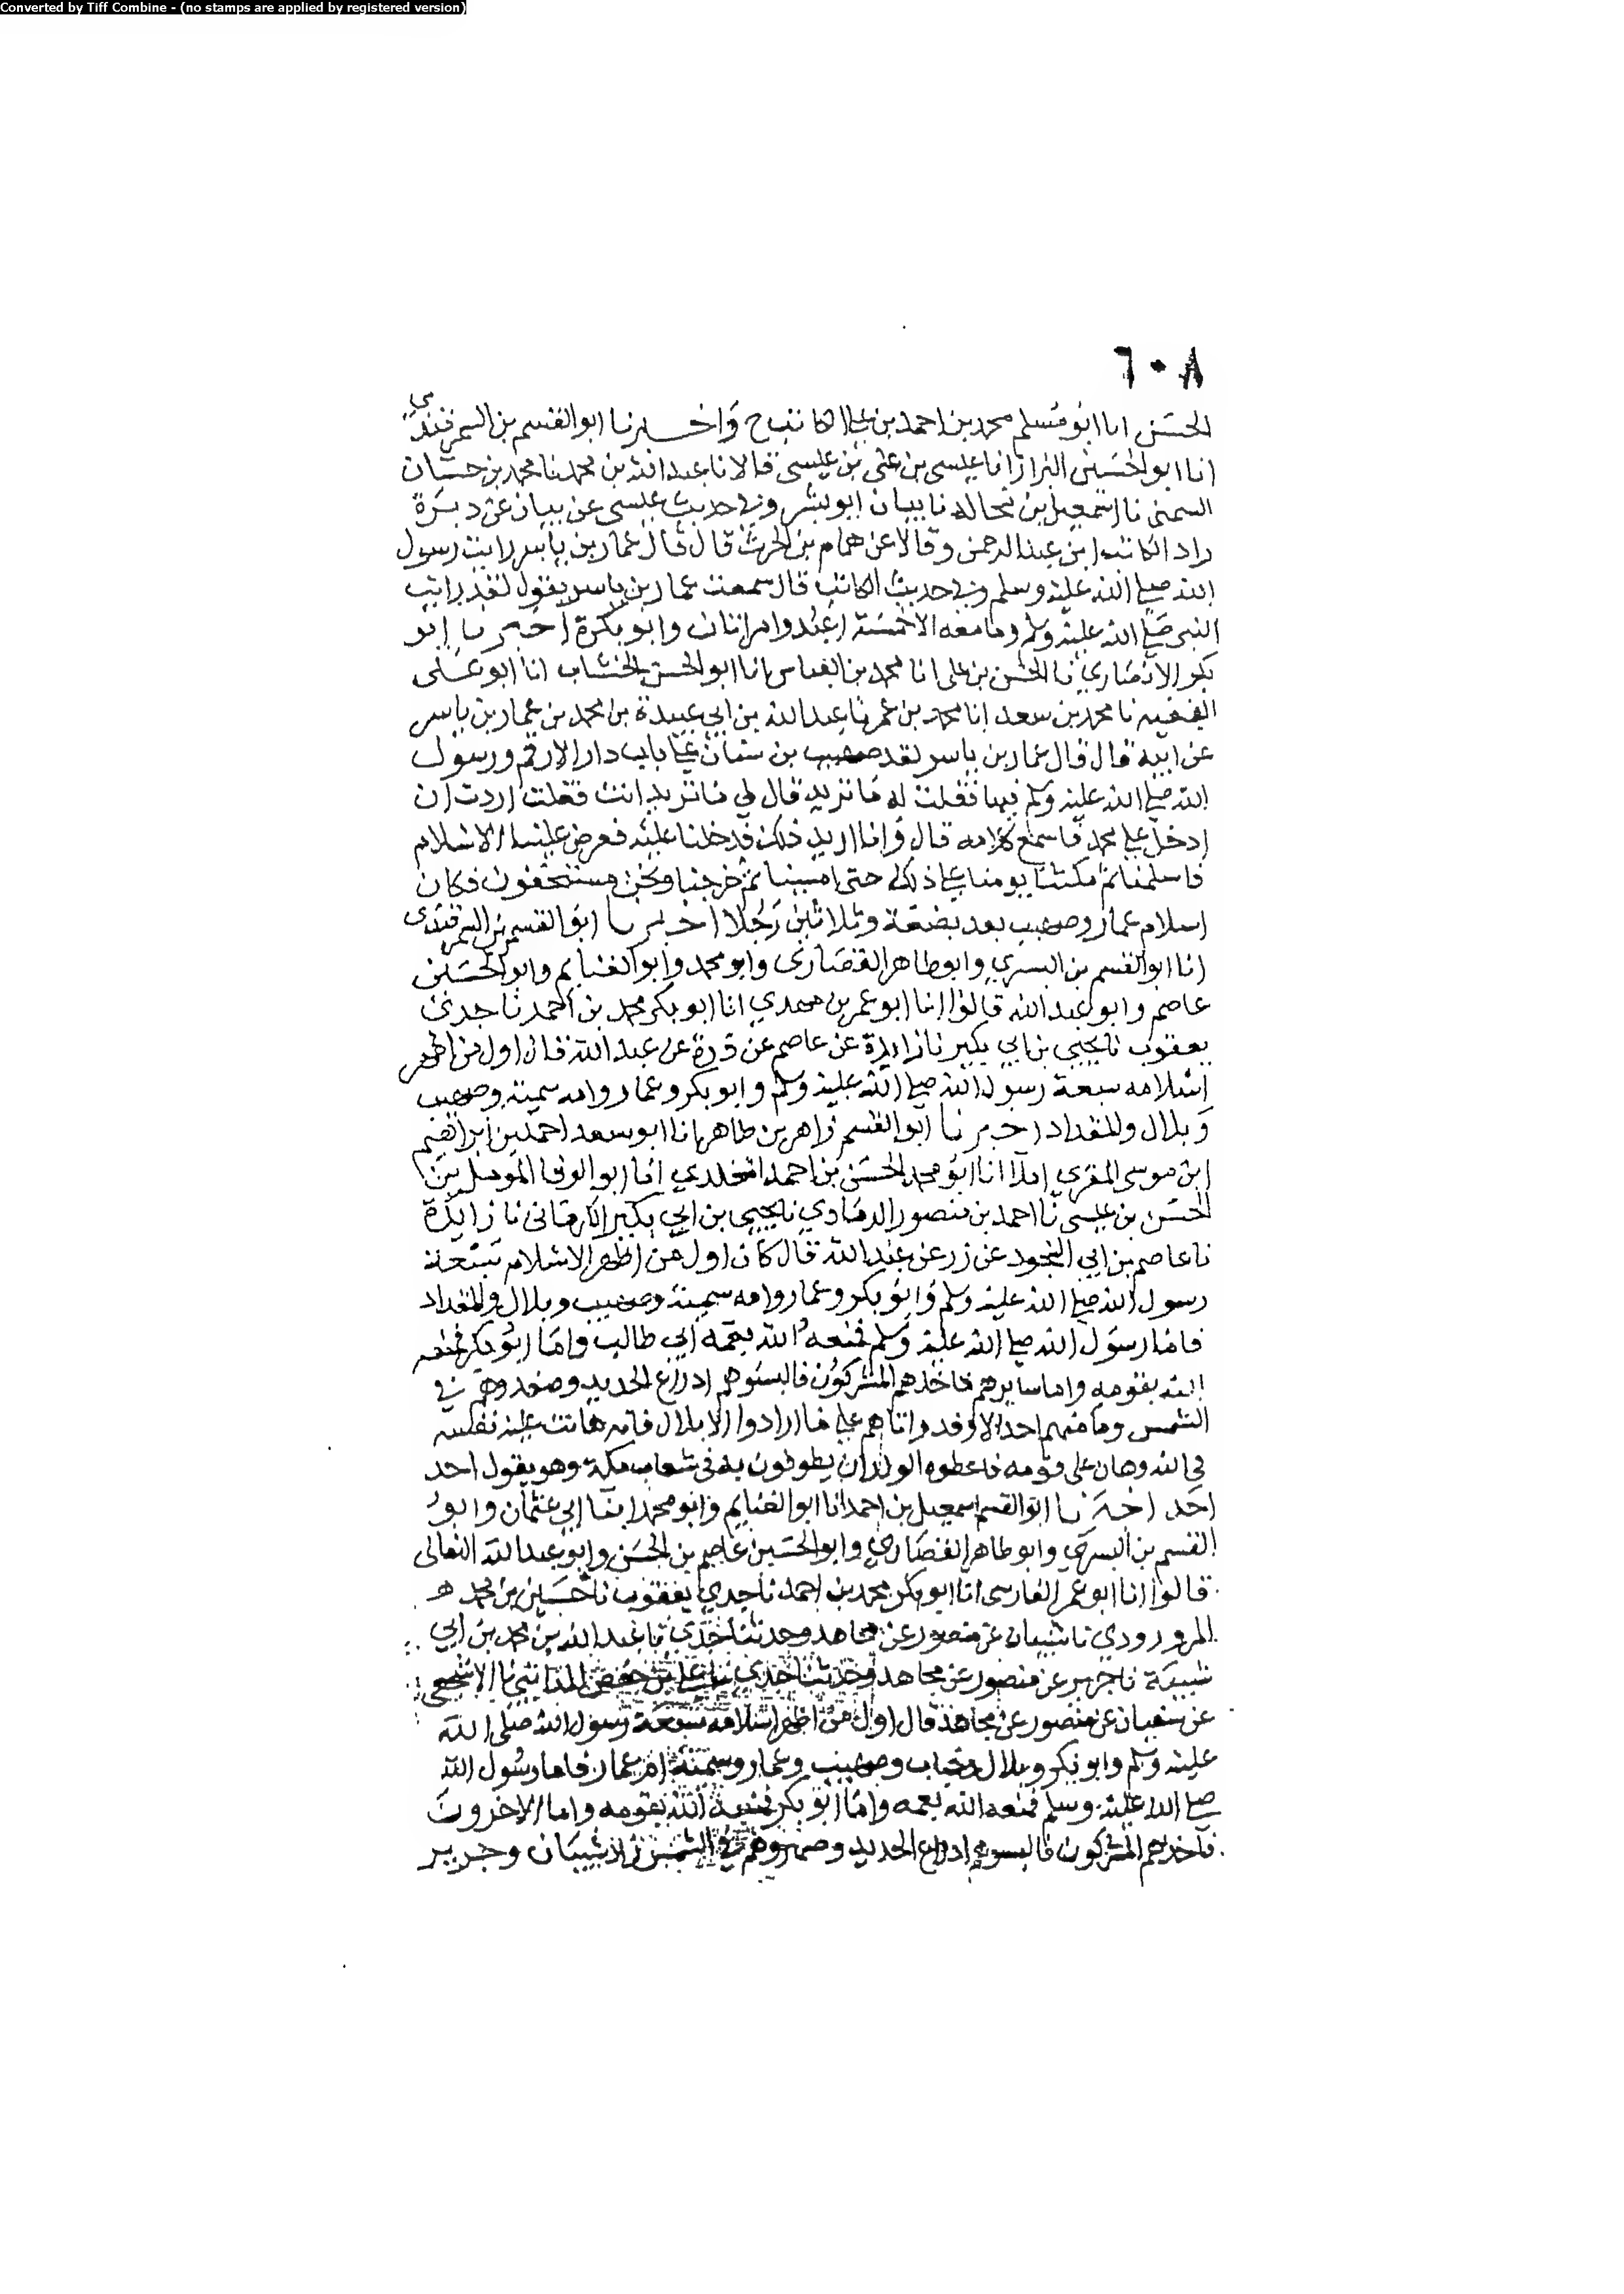 Converted by Tiff Combine - (no stamps are applied by registered version)
٦٠٨
الحسن انا ابو مسلم محمد بن احمد بن علي الكاتب ح واخبرنا ابو القسم بن السمرقندي
انا ابو الحسين البزاز انا عيسى بن علي بن عيسى قالا نا عبد الله بن محمد نا محمد بن حسان
السمتي نا اسمعيل بن مجالد نا بيان ابو بشر وفي حديث عيسى عن بيان عن وبرة
زاد الكاتب ابن عبد الرحمن وقالا عن همام بن الحرث قال قال عمار بن ياسر رايت رسول
الله صلى الله عليه وسلم وفي حديث الكاتب قال سمعت عمار بن ياسر يقول لقد رايت
النبي صلى الله عليه وسلم وما معه الا خمسة اعبد وامراتان وابو بكر اخبرنا ابو
بكر الانصاري نا الحسن بن علي انا محمد بن العباس انا ابو الحسن الخشاب انا ابو علي
الفقيه نا محمد بن سعد انا محمد بن عمر نا عبد الله بن ابي عبيدة بن محمد بن عمار بن ياسر
عن ابيه قال قال عمار بن ياسر لقد صهيب بن سنان على باب دار الارقم ورسول
الله صلى الله عليه وسلم فيها فقلت له ما تريد قال لي ما تريد انت فقلت اردت ان
ادخل على محمد فاسمع كلامه قال وانا اريد ذلك فدخلنا عليه فعرض علينا الاسلام
فاسلمنا ثم مكثنا يومنا على ذلك حتى امسينا ثم خرجنا ونحن مستخفون فكان
اسلام عمار وصهيب بعد بضعة وثلاثين رجلا اخبرنا ابو القسم بن السمرقندي
انا ابو القسم بن البسري وابو طاهر القصاري وابو محمد وابو الغنايم وابو الحسين
عاصم وابو عبد الله قالوا انا ابو عمر بن مهدي انا ابو بكر محمد بن احمد نا جدي
يعقوب نا يحيى بن ابي بكير نا زايدة عن عاصم عن زر عن عبد الله قال اول من اظهر
اسلامه سبعة رسول الله صلى الله عليه وسلم وابو بكر وعمار وامه سمية وصهيب
وبلال والمقداد اخبرنا ابو القسم زاهر بن طاهر انا ابو سعد احمد بن ابراهيم
ابن موسى المقري املا انا ابو محمد الحسن بن احمد المخلدي انا ابو الوفا المومل بن
الحسن بن عيسى نا احمد بن منصور الرمادي نا يحيى بن ابي بكير الكرماني نا زايدة
نا عاصم بن ابي النجود عن زر عن عبد الله قال كان اول من اظهر الاسلام سبعة
رسول الله صلى الله عليه وسلم وابو بكر وعمار وامه سمية وصهيب وبلال والمقداد
فاما رسول الله صلى الله عليه وسلم فمنعه الله بعمه ابي طالب واما ابو بكر فمنعه
الله بقومه واما سايرهم فاخذهم المشركون فالبسوهم ادراع الحديد وصفدوهم في
الشمس وما منهم احد الا وقد واتاهم على ما ارادوا الا بلال فانه هانت عليه نفسه
في الله وهان على قومه فاعطوه الولدان يطوفون به في شعاب مكة وهو يقول احد
احد اخبرنا ابو القسم اسمعيل بن احمد انا ابو الغنايم وابو محمد ابنا ابي عثمان وابو
القسم بن البسري وابو طاهر القصاري وابو الحسين عاصم بن الحسن وابو عبد الله النعالي
قالوا انا ابو عمر الفارسي انا ابو بكر محمد بن احمد نا جدي يعقوب نا حسين بن محمد
المروروذي نا شيبان عن منصور عن مجاهد وحدثنا جدي نا عبد الله بن محمد بن ابي
شيبة نا جرير عن منصور عن مجاهد وحدثنا جدي نا علي بن حفص المدايني نا الاشجعي
عن سفيان عن منصور عن مجاهد قال اول من اظهر اسلامه سبعة رسول الله صلى الله
عليه وسلم وابو بكر وبلال وخباب وصهيب وعمار وسمية ام عمار فاما رسول الله
صلى الله عليه وسلم فمنعه الله بعمه واما ابو بكر فمنعه الله بقومه واما الاخرون
فاخذهم المشركون فالبسوهم ادراع الحديد وصهروهم في الشمس زاد شيبان وجرير